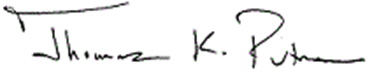 Thomas K. Putnam